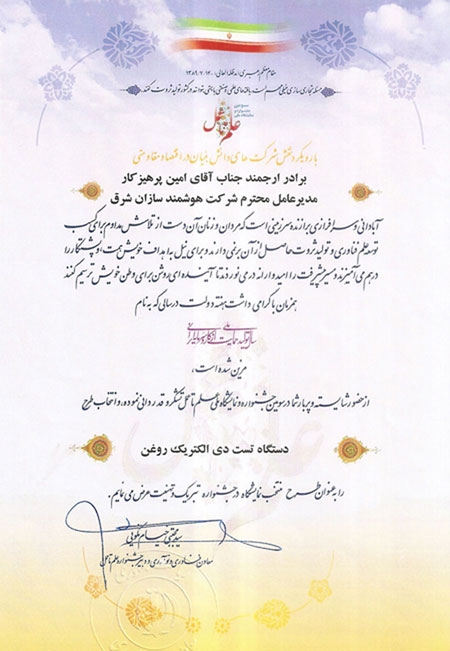 مقام معظم رهبری (مدظله العالی) ۱۳۸۹/۷/۱۴
مسئله تجاری سازی خیلی مهم است یافته‌های علمی و صنعتی بایستی بتوانند در کشور تولید ثروت کنند.
سومین جشنواره و نمایشگاه ملی
علم تا عمل
با رویکرد نقش شرکت های دانش بنیان در اقتصاد مقاومتی
برادر ارجمند جناب آقای امین پرهیزکار
مدیرعامل محترم شرکت هوشمند سازان شرق
آبادانی و سرفرازی برازنده سرزمینی است که مردان و زنان آن دست از تلاش مداوم برای کسب
توسعه علم، فناوری و تولید ثروت حاصل از آن برنمی دارند و برای نیل به اهداف خویش همت و پشتکار را
درهم می آمیزند و مسیر پیشرفت را امیدوارانه درمی نوردند تا آینده ای روشن برای وطن خویش ترسیم کنند
همزمان با گرامی داشت هفته دولت در سالی که به نام
سال تولید ملی حمایت از کار و سرمایه ایرانی
مزین شده است،
از حضور شایسته و پربار شما در سومین جشنواره و نمایشگاه ملی علم تا عمل تشکر و قدردانی نموده و انتخاب طرح
دستگاه تست دی الکتریک روغن
را به عنوان طرح منتخب نمایشگاه در جشنواره تبریک و تهنیت عرض می نمایم.
سید مجتبی
معاون فناوری و نوآوری و دبیر جشنواره علم تا عمل